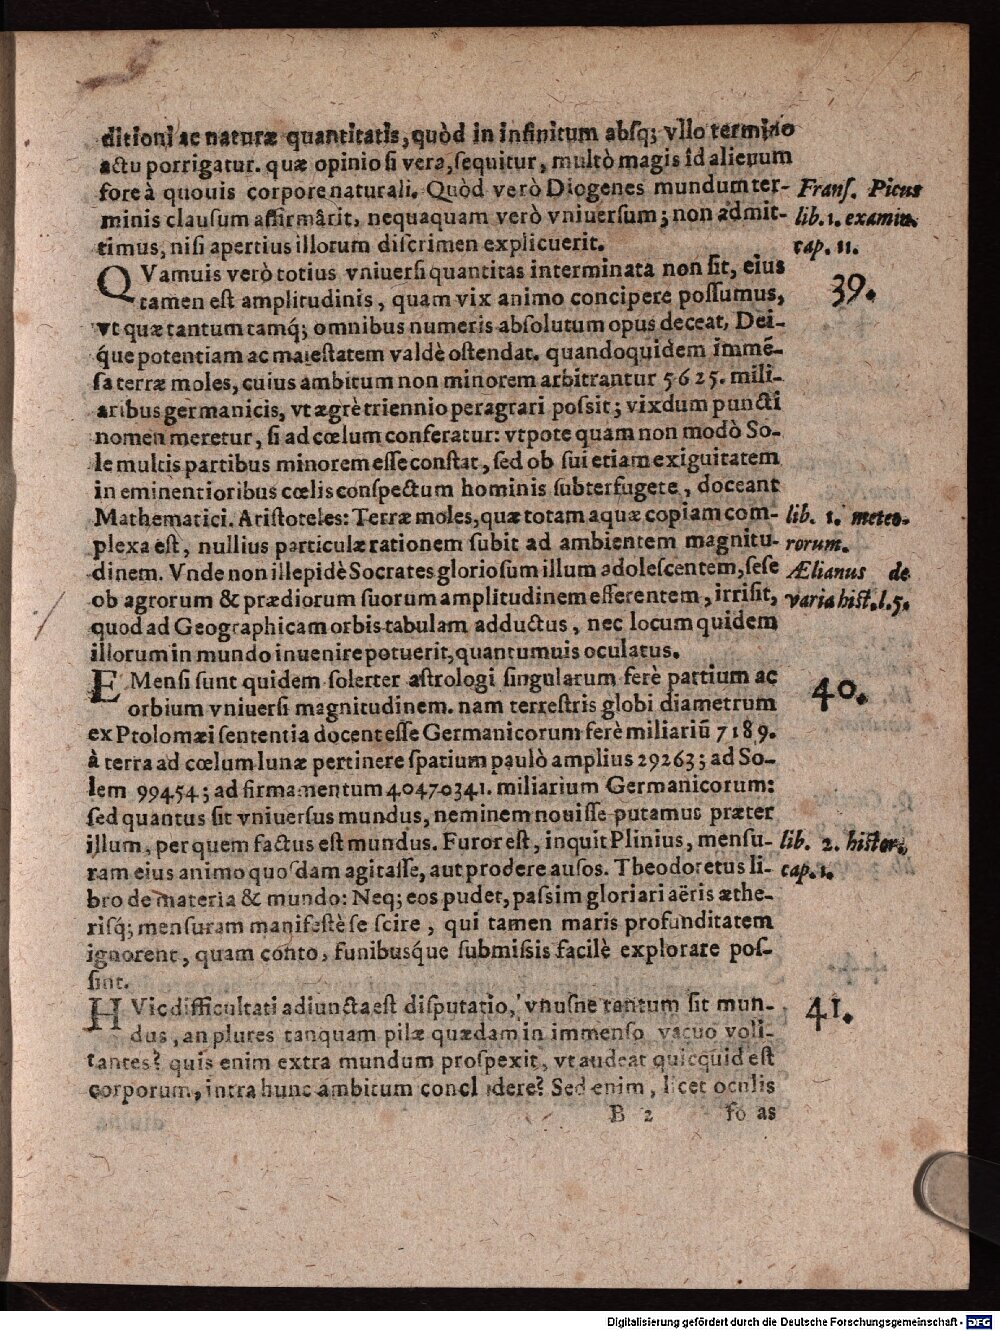 ditioni ac naturæ quantitatis, quòd in infinitum absq; vllo termino
actu porrigatur. quæ opinio si vera, sequitur, multò magis id alienum
fore à quouis corpore naturali. Quòd verò Diogenes mundum ter-
Frans. Picus
minis clausum affirmârit, nequaquam verò vniuersum; non admit-
lib. 1. examin.
timus, nisi apertius illorum discrimen explicuerit.
cap. 11.
QVamuis verò totius vniuersi quantitas interminata non sit, eius
39.
tamen est amplitudinis, quam vix animo concipere possumus,
vt quæ tantum tamq́; omnibus numeris absolutum opus deceat, Dei-
que potentiam ac maiestatem valdè ostendat. quandoquidem immē-
sa terræ moles, cuius ambitum non minorem arbitrantur 5625. mili-
aribus germanicis, vt ægrè triennio peragrari possit; vixdum puncti
nomen meretur, si ad cœlum conferatur: vtpote quam non modò So-
le multis partibus minorem esse constat, sed ob sui etiam exiguitatem
in eminentioribus cœlis conspectum hominis subterfugere, doceant
Mathematici. Aristoteles: Terræ moles, quæ totam aquæ copiam com-
lib. 1. meteo-
plexa est, nullius particulæ rationem subit ad ambientem magnitu-
rorum.
dinem. Vnde non illepidè Socrates gloriosum illum adolescentem, sese
Ælianus de
ob agrorum & prædiorum suorum amplitudinem efferentem, irrisit,
varia hist. l. 5.
quod ad Geographicam orbis tabulam adductus, nec locum quidem
illorum in mundo inuenire potuerit, quantumuis oculatus.
EMensi sunt quidem solerter astrologi singularum ferè partium ac
40.
orbium vniuersi magnitudinem. nam terrestris globi diametrum
ex Ptolomæi sententia docent esse Germanicorum ferè miliariū 7189.
à terra ad cœlum lunæ pertinere spatium paulò amplius 29263; ad So-
lem 99454; ad firmamentum 40470341. miliarium Germanicorum:
sed quantus sit vniuersus mundus, neminem nouisse putamus præter
illum, per quem factus est mundus. Furor est, inquit Plinius, mensu-
lib. 2. histor.
ram eius animo quosdam agitasse, aut prodere ausos. Theodoretus li-
cap. 1.
bro de materia & mundo: Neq; eos pudet, passim gloriari aëris æthe-
risq́; mensuram manifestè se scire, qui tamen maris profunditatem
ignorent, quam conto, funibusque submissis facilè explorare pos-
sint.
HVic difficultati adiuncta est disputatio, vnusne tantum sit mun-
41.
dus, an plures tanquam pilæ quædam in immenso vacuo voli-
tantes? quis enim extra mundum prospexit, vt audeat quicquid est
corporum, intra hunc ambitum concludere? Sed enim, licet oculis
B 2
fo as
Digitalisierung gefördert durch die Deutsche Forschungsgemeinschaft - DFG